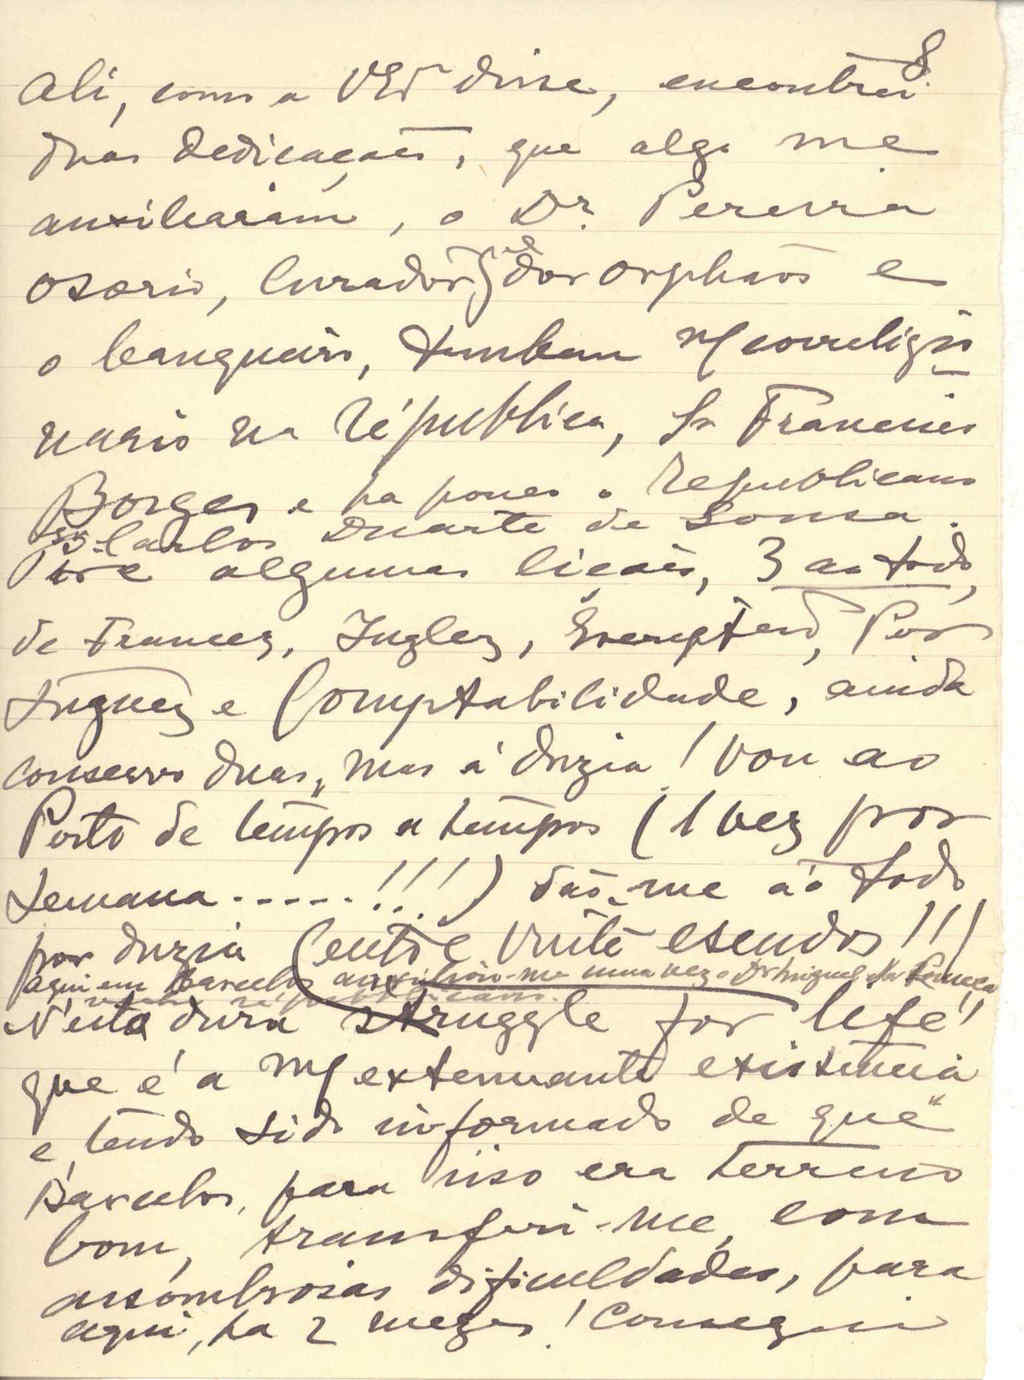 8
Ali, como a VExª disse, encontrei
duas dedicações, que algo me
auxiliaram, o Dr. Pereira
Osorio, Curador dos Orphãos e
o banqueiro, tambem m/ correligio
nario na républica, Sr Francisco
Borges e ha pouco o republicano
Sr. Carlos Duarte de Sousa.
Tive algumas licões, 3 ao todo,
de Francez, Inglez, Por
tuguez e Comptabilidade, ainda
conservo duas, mas á duzia! Vou ao
Porto de tempos a tempos (1 vez por
semana.....!!!) dão-me ao todo
por duzia (cento e vinte escudos!!!
Aqui em Barcelos auxiliou-me uma vez o Dr Miguel da Fonseca
N'esta dura struggle for life!
que é a m/ extenuante existencia
e, tendo sido informado de que
Barcelos, para isso era terreno
bom, transferi-me, com
assombrosas dificuldades, para
aqui, ha 2 mezes! Consegui